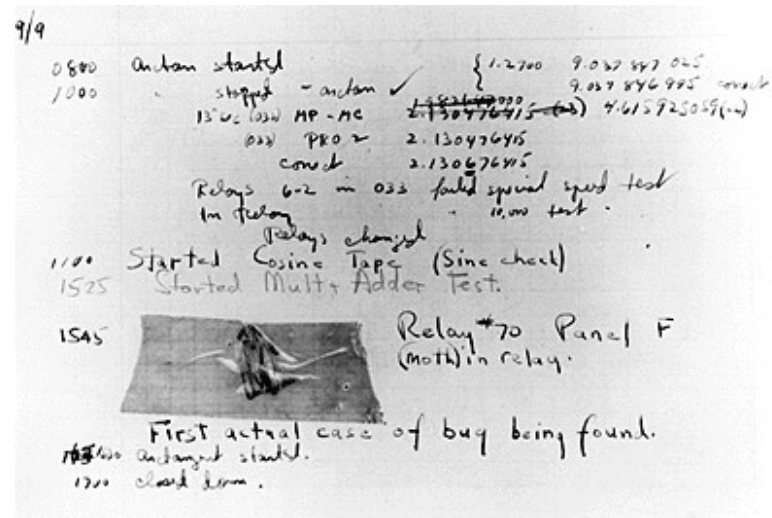 9/9
0800 antan started { 1.2700 9.037 847 025
1000 " stopped - antan ✓ 9.037 846 995 correct
13"uc (032) MP - MC 2.130476415 4.615925059(-2)
(033) PRO 2 2.130476415
correct 2.130676415
Relays 6-2 in 033 failed special speed test
In Relay " 10,000 test .
Relays changed
1100 Started Cosine Tape (Sine check)
1525 Started Mult + Adder Test.
1545 Relay #70 Panel F
(moth) in relay.
First actual case of bug being found.
1630 antangent started.
1700 closed down .